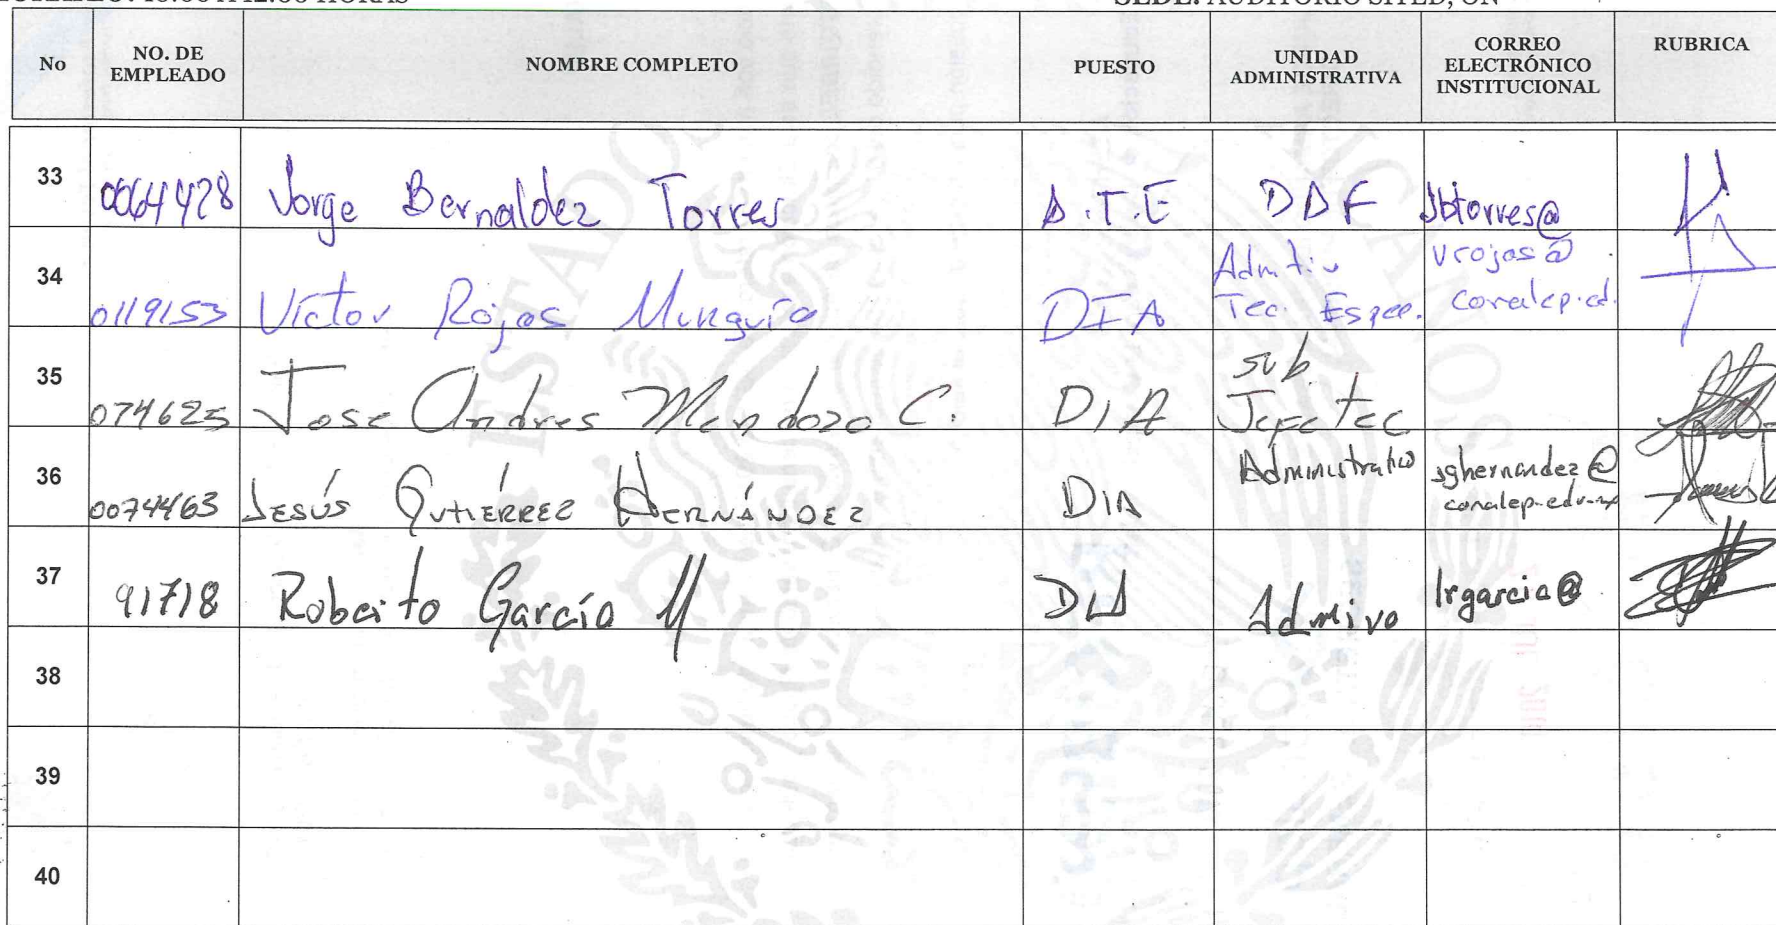 10:00 A 12:00 HORAS SEDE: AUDITORIO SITED, ON
No NO. DE EMPLEADO NOMBRE COMPLETO PUESTO UNIDAD ADMINISTRATIVA CORREO ELECTRÓNICO INSTITUCIONAL RUBRICA
33 0064428 Jorge Bernaldez Torres A.T.E DDF Jbtorres@
34 0119153 Víctor Rojas Munguía DIA Admtiv Tec. Espec. vrojas@ conalep.ed.
35 074625 Jose Andres Mendoza C. DIA sub Jefe tec
36 0074463 JESÚS GUTIÉRREZ HERNÁNDEZ DIA Administrativo jghernandez@ conalep.edu.mx
37 91718 Roberto García M DIA Admivo lrgarcia@
38
39
40